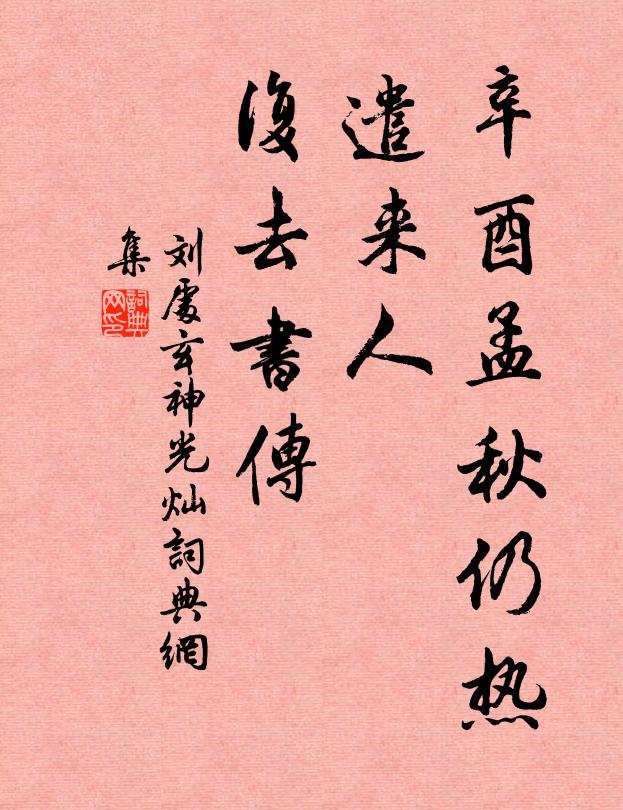 辛酉孟秋仍热
遣来人
復去書傳
刘處玄神光灿詞典網
集
詞典网印